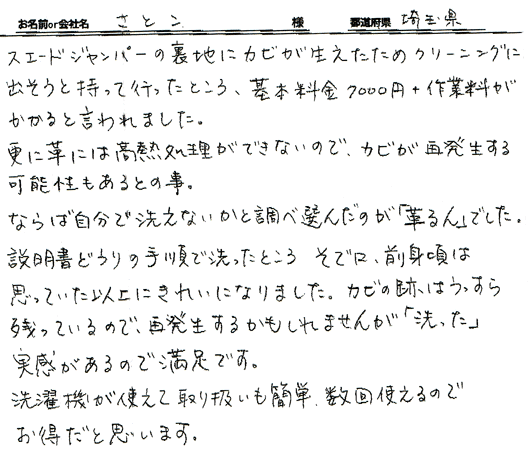 お名前or会社名 さとこ 様 都道府県 埼玉県
スエードジャンパーの裏地にカビが生えたためクリーニングに
出そうと持って行ったところ、基本料金7000円+作業料が
かかると言われました。
更に革には高熱処理ができないので、カビが再発生する
可能性もあるとの事。
ならば自分で洗えないかと調べ選んだのが「革るん」でした。
説明書どうりの手順で洗ったところ そで口、前身頃は
思っていた以上にきれいになりました。カビの跡はうっすら
残っているので、再発生するかもしれませんが「洗った」
実感があるので満足です。
洗濯機が使えて取り扱いも簡単、数回使えるので
お得だと思います。